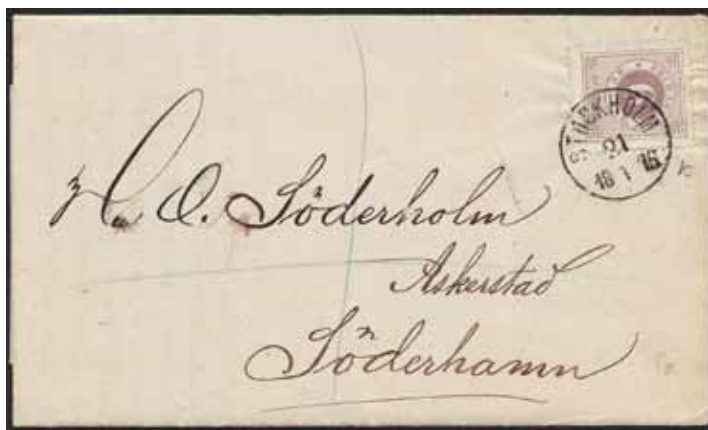 STOCKHOLM
21
18 1 76
O. Söderholm
Askerstad
Söderhamn